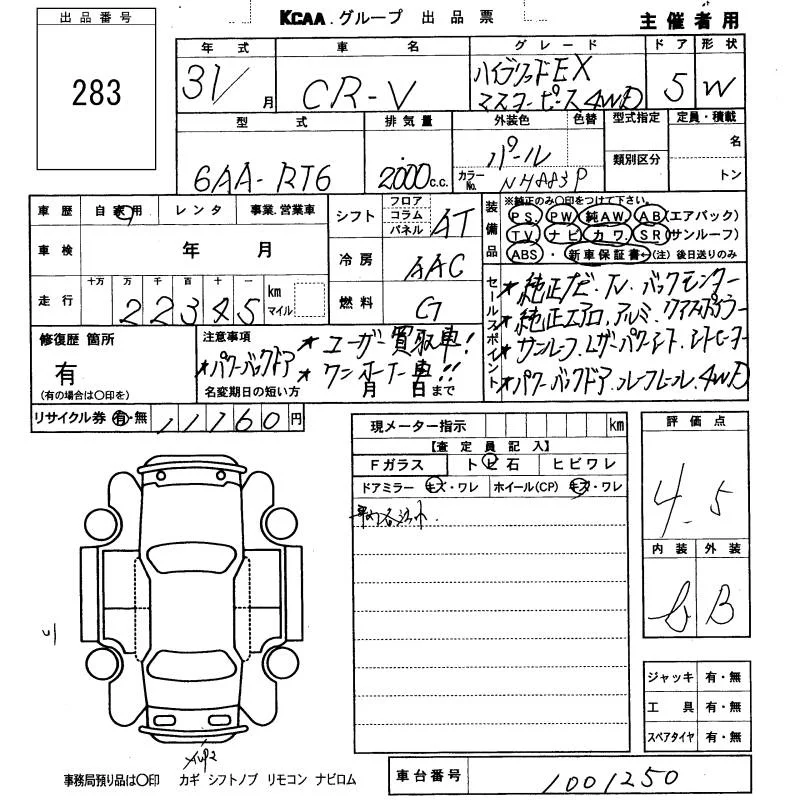 出品番号
283
KCAA.グループ 出品票
主催者用
年式 車名 グレード ドア 形状
31/ 月 CR-V ハイブリッドEX
マスターピース4WD 5 W
型式 排気量 外装色 色替 型式指定 定員・積載
類別区分 名
トン
6AA-RT6 2000c.c. パール
カラーNo. NH883P
車歴 自家用 レンタ 事業.営業車
車検 年 月
走行 十万 万 千 百 十 一
22345 km マイル
シフト フロア コラム パネル AT
冷房 AAC
燃料 G
装備品
※純正のみ〇印をつけて下さい。
PS. PW 純AW. AB(エアバック)
TV. ナビ カワ. SR(サンルーフ)
ABS. 新車保証書←(注) 後日送りのみ
セールスポイント
★純正ナビ.TV.バックモニター
★純正エアロ.アルミ.リアスポイラー
★サンルーフ.Lザーパワーシート.シートヒーター
★パワーバックドア.ルーフレール.4WD
修復歴 箇所
有
(有の場合は〇印を)
注意事項
★パワーバックドア
★ユーザー買取車!
★ワンオーナー車!!
名変期日の短い方 月 日まで
リサイクル券 有・無 11760円
現メーター指示 km
【査定員記入】
Fガラス トビ石 ヒビワレ
ドアミラー キズ・ワレ ホイール(CP) キズ・ワレ
評価点
4.5
内装 外装
B B
ジャッキ 有・無
工具 有・無
スペアタイヤ 有・無
事務局預り品は〇印 カギ シフトノブ リモコン ナビロム
車台番号 1001250